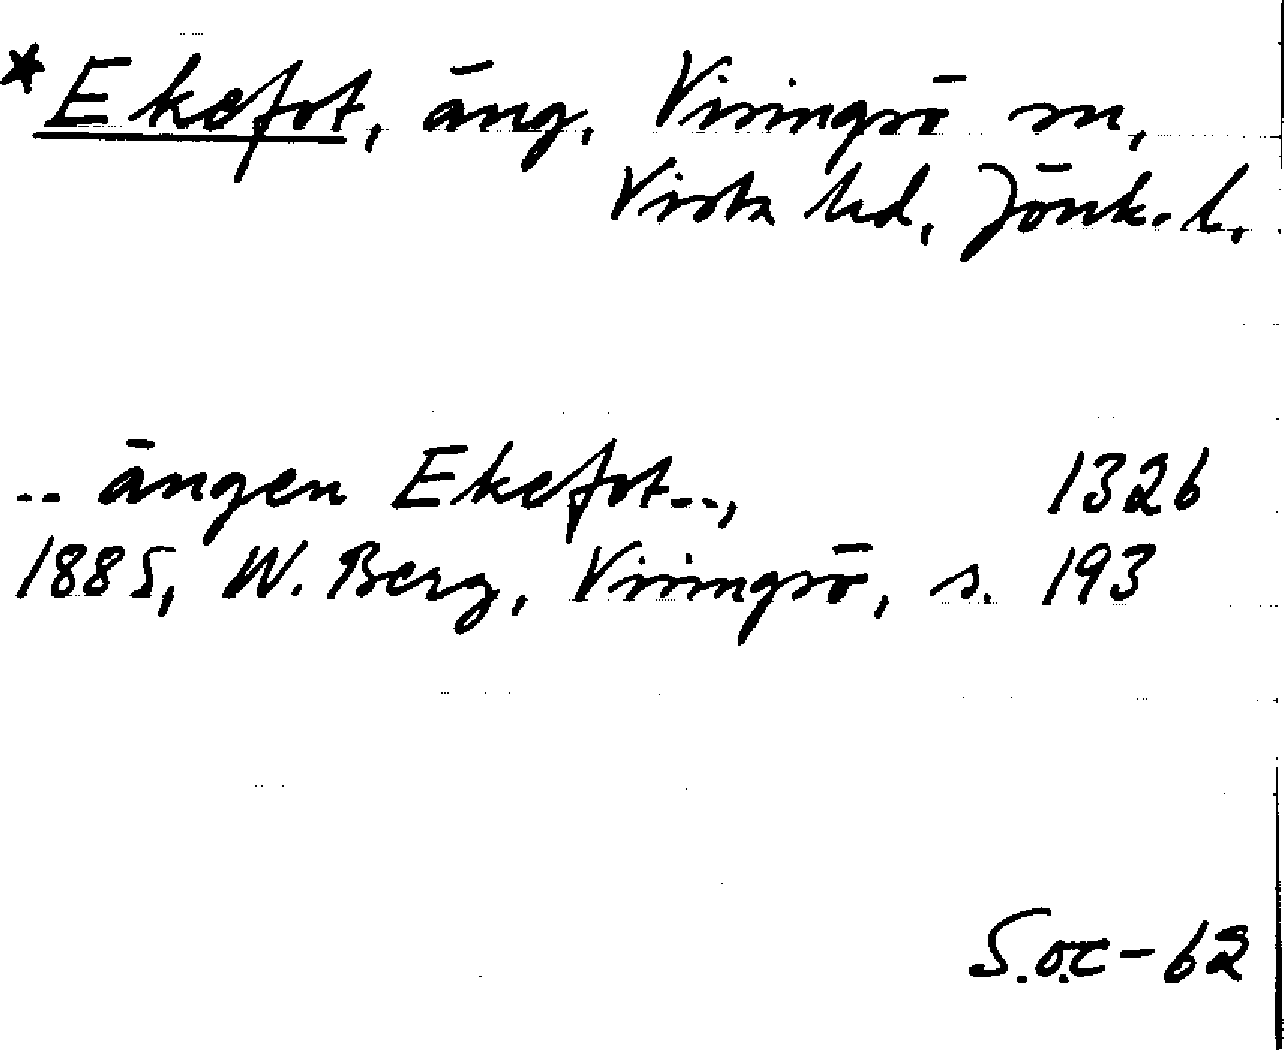 *Ekefot, äng, Visingsö sn,
Vista hd, Jönk. l.
.. ängen Ekefot.., 1326
1885, W. Berg, Visingsö, s. 193
S.o.c-62